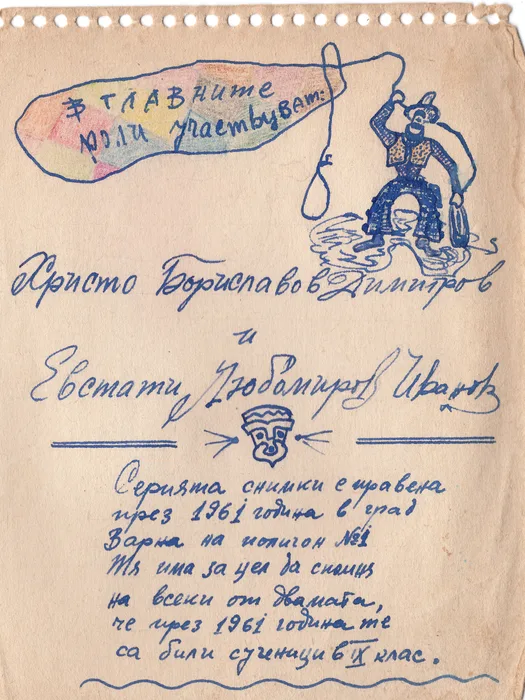 В главните
роли участвуват:
Христо Бориславов Димитров
и
Евстати Любомиров Иванов
Серията снимки е правена
през 1961 година в град
Варна на полигон №1
Тя има за цел да спомня
на всеки от двамата,
че през 1961 година те
са били сученици в IX клас.